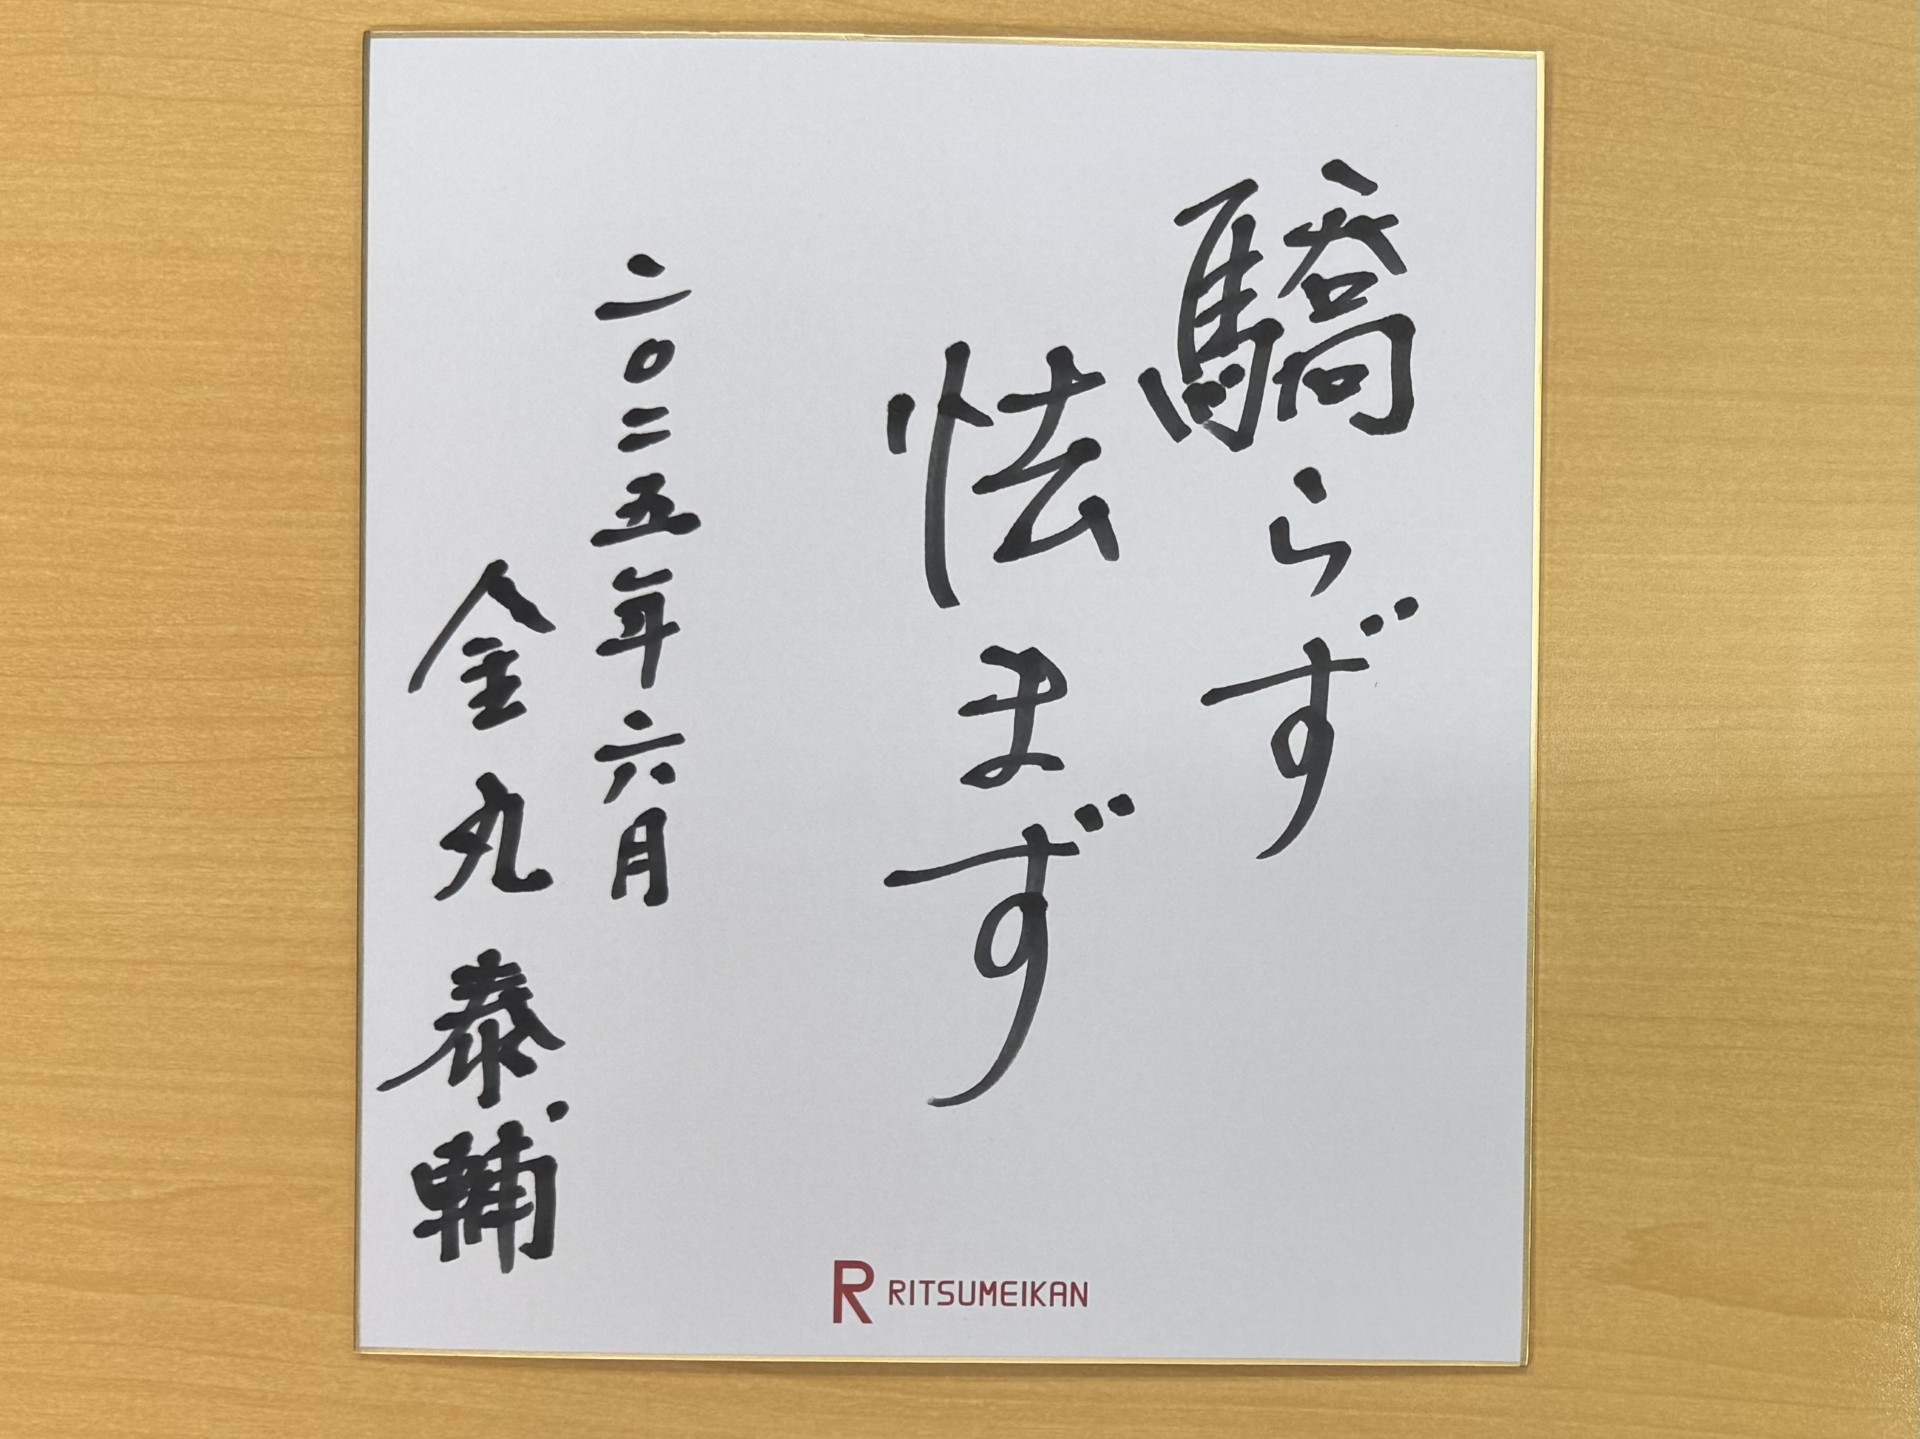 驕らず
怯まず
二〇二五年六月
金丸泰輔
R RITSUMEIKAN